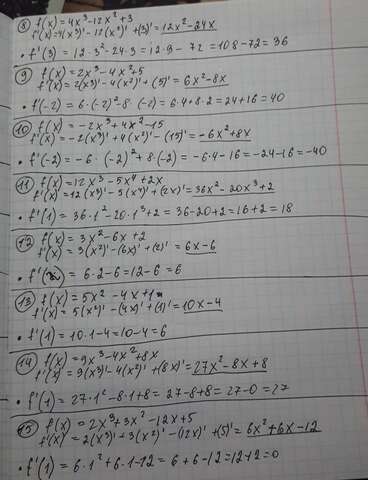 8 f(x) = 4x³-12x²+3
f'(x)=4(x³)'-12(x²)'+(3)' = 12x²-24x
• f'(3) = 12·3²-24·3 = 12·9 - 72 = 108-72 = 36
9 f(x) = 2x³-4x²+5
f'(x) = 2(x³)'-4(x²)'+(5)' = 6x²-8x
• f'(-2) = 6·(-2)²-8·(-2) = 6·4+8·2 = 24+16 = 40
10 f(x) = -2x³+4x²-15
f'(x) = -2(x³)'+4(x²)'-(15)' = -6x²+8x
• f'(-2) = -6·(-2)²+8·(-2) = -6·4-16 = -24-16 = -40
11 f(x) = 12x³-5x⁴+2x
f'(x) = 12(x³)'-5(x⁴)'+(2x)' = 36x²-20x³+2
• f'(1) = 36·1²-20·1³+2 = 36-20+2 = 16+2 = 18
12 f(x) = 3x²-6x+2
f'(x) = 3(x²)'-(6x)'+(2)' = 6x-6
• f'(2) = 6·2-6 = 12-6 = 6
13 f(x) = 5x²-4x+1
f'(x) = 5(x²)'-(4x)'+(1)' = 10x-4
• f'(1) = 10·1-4 = 10-4 = 6
14 f(x) = 9x³-4x²+8x
f'(x) = 9(x³)'-4(x²)'+(8x)' = 27x²-8x+8
• f'(1) = 27·1²-8·1+8 = 27-8+8 = 27-0 = 27
15 f(x) = 2x³+3x²-12x+5
f'(x) = 2(x³)'+3(x²)'-(12x)'+(5)' = 6x²+6x-12
• f'(1) = 6·1²+6·1-12 = 6+6-12 = 12-12 = 0